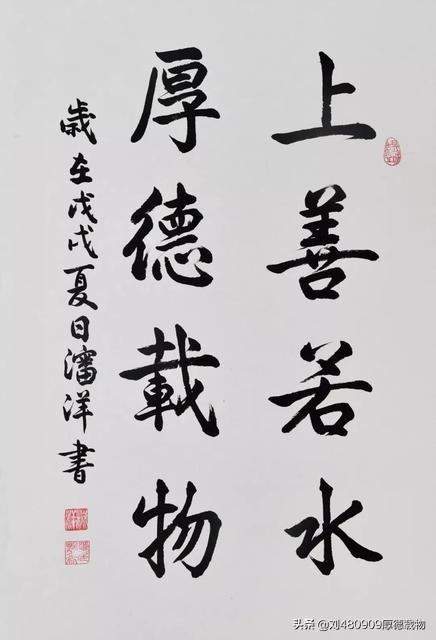 上善若水
厚德載物
歲在戊戌夏日瀋洋書
头条@刘480909厚德载物